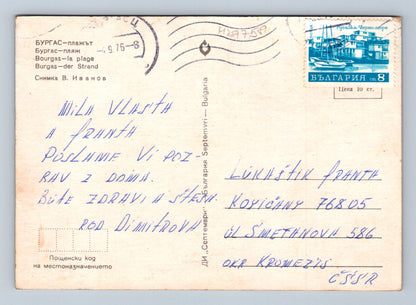 БУРГАС-пляжът
Бургас-пляж
Bourgas-la plage
Burgas-der Strand
Снимка В. Иванов
-4.9.76-8
БЪЛГАРИЯ 8
Цена 10 ст.
MILÁ VLASTA
A FRANTA
POSLAME VI POZ-
RAV Z DOMA.
BUTE ZDRAVI A
ROD DIMITROVA
ДИ „Септември" - България Septemvri - Bulgaria
LUKAŠTIK FRANTA
KOVIČANY 76805
UL SMETANOVA 586
OKR KROMEZIS
ČSSR
Пощенски код
на местоназначението